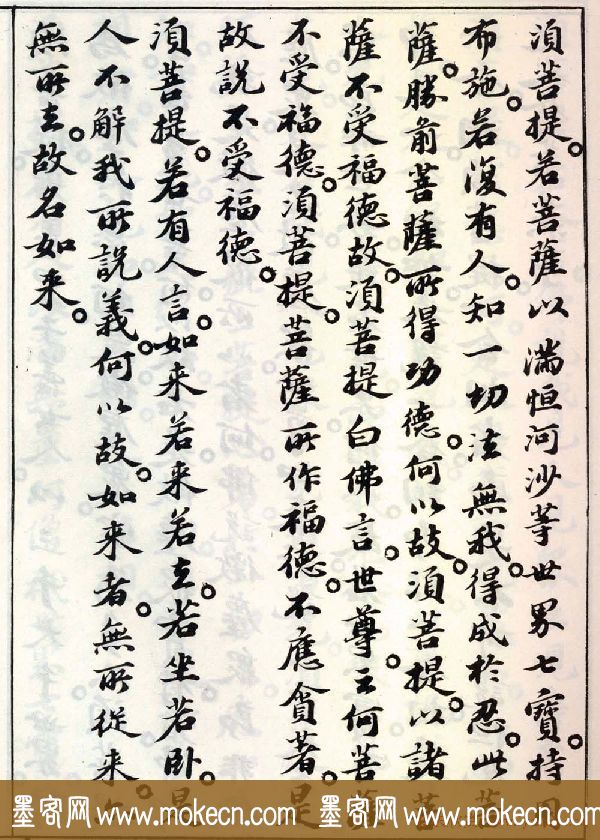 須菩提。若菩薩以滿恒河沙等世界七寶。持用
布施。若復有人。知一切法無我。得成於忍。此菩
薩。勝前菩薩所得功德。何以故。須菩提。以諸菩
薩不受福德故。須菩提白佛言。世尊。云何菩薩
不受福德。須菩提。菩薩所作福德。不應貪著。是
故說不受福德。
須菩提。若有人言。如来若来若去。若坐若卧。是
人不解我所說義。何以故。如来者。無所從来。亦
無所去。故名如来。
墨客网 www.mokecn.com 墨客网 www.mokecn.com